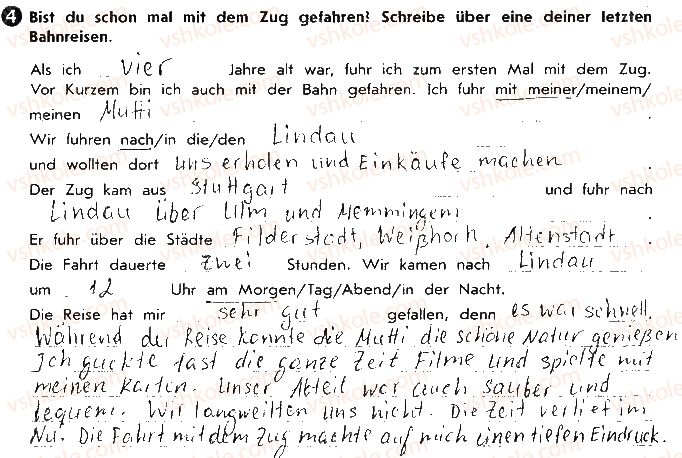 4 Bist du schon mal mit dem Zug gefahren? Schreibe über eine deiner letzten
Bahnreisen.
Als ich vier Jahre alt war, fuhr ich zum ersten Mal mit dem Zug.
Vor Kurzem bin ich auch mit der Bahn gefahren. Ich fuhr mit meiner/meinem/
meinen Mutti .
Wir fuhren nach/in die/den Lindau
und wollten dort uns erholen und Einkäufe machen .
Der Zug kam aus Stuttgart und fuhr nach
Lindau über Ulm und Memmingem .
Er fuhr über die Städte Filderstadt, Weißhorh, Altenstadt .
Die Fahrt dauerte zwei Stunden. Wir kamen nach Lindau
um 12 Uhr am Morgen/Tag/Abend/in der Nacht.
Die Reise hat mir sehr gut gefallen, denn es war schnell.
Während der Reise konnte die Mutti die schöne Natur genießen
Ich guckte fast die ganze Zeit Filme und spielte mit
meinen Karten. Unser Abteil war auch sauber und
bequem. Wir langweilten uns nicht. Die Zeit verlief im
Nu. Die Fahrt mit dem Zug machte auf mich einen tiefen Eindruck.
vshkole.com